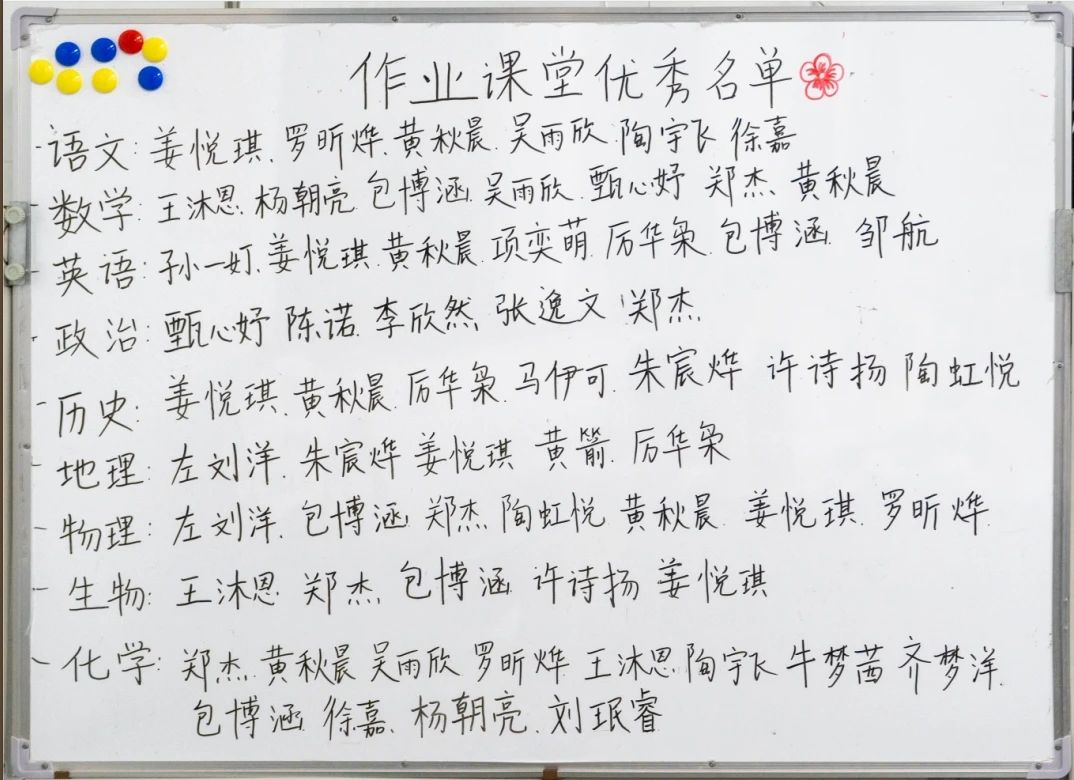 作业课堂优秀名单
语文: 姜悦琪. 罗昕烨. 黄秋晨. 吴雨欣. 陶宇飞 徐嘉
数学: 王沐恩. 杨朝亮 包博涵. 吴雨欣. 甄心妤 郑杰. 黄秋晨
英语: 孙一虰. 姜悦琪. 黄秋晨. 项奕萌. 厉华枭. 包博涵. 邹航
政治: 甄心妤 陈诺. 李欣然. 张逸文 郑杰.
历史: 姜悦琪. 黄秋晨. 厉华枭. 马伊可. 朱宸烨 许诗扬 陶虹悦
地理: 左刘洋. 朱宸烨 姜悦琪 黄箭. 厉华枭
物理: 左刘洋. 包博涵. 郑杰. 陶虹悦 黄秋晨. 姜悦琪. 罗昕烨.
生物: 王沐恩 郑杰. 包博涵. 许诗扬 姜悦琪
化学: 郑杰. 黄秋晨 吴雨欣 罗昕烨 王沐恩 陶宇飞 牛梦茜 齐梦洋.
包博涵. 徐嘉. 杨朝亮. 刘珉睿